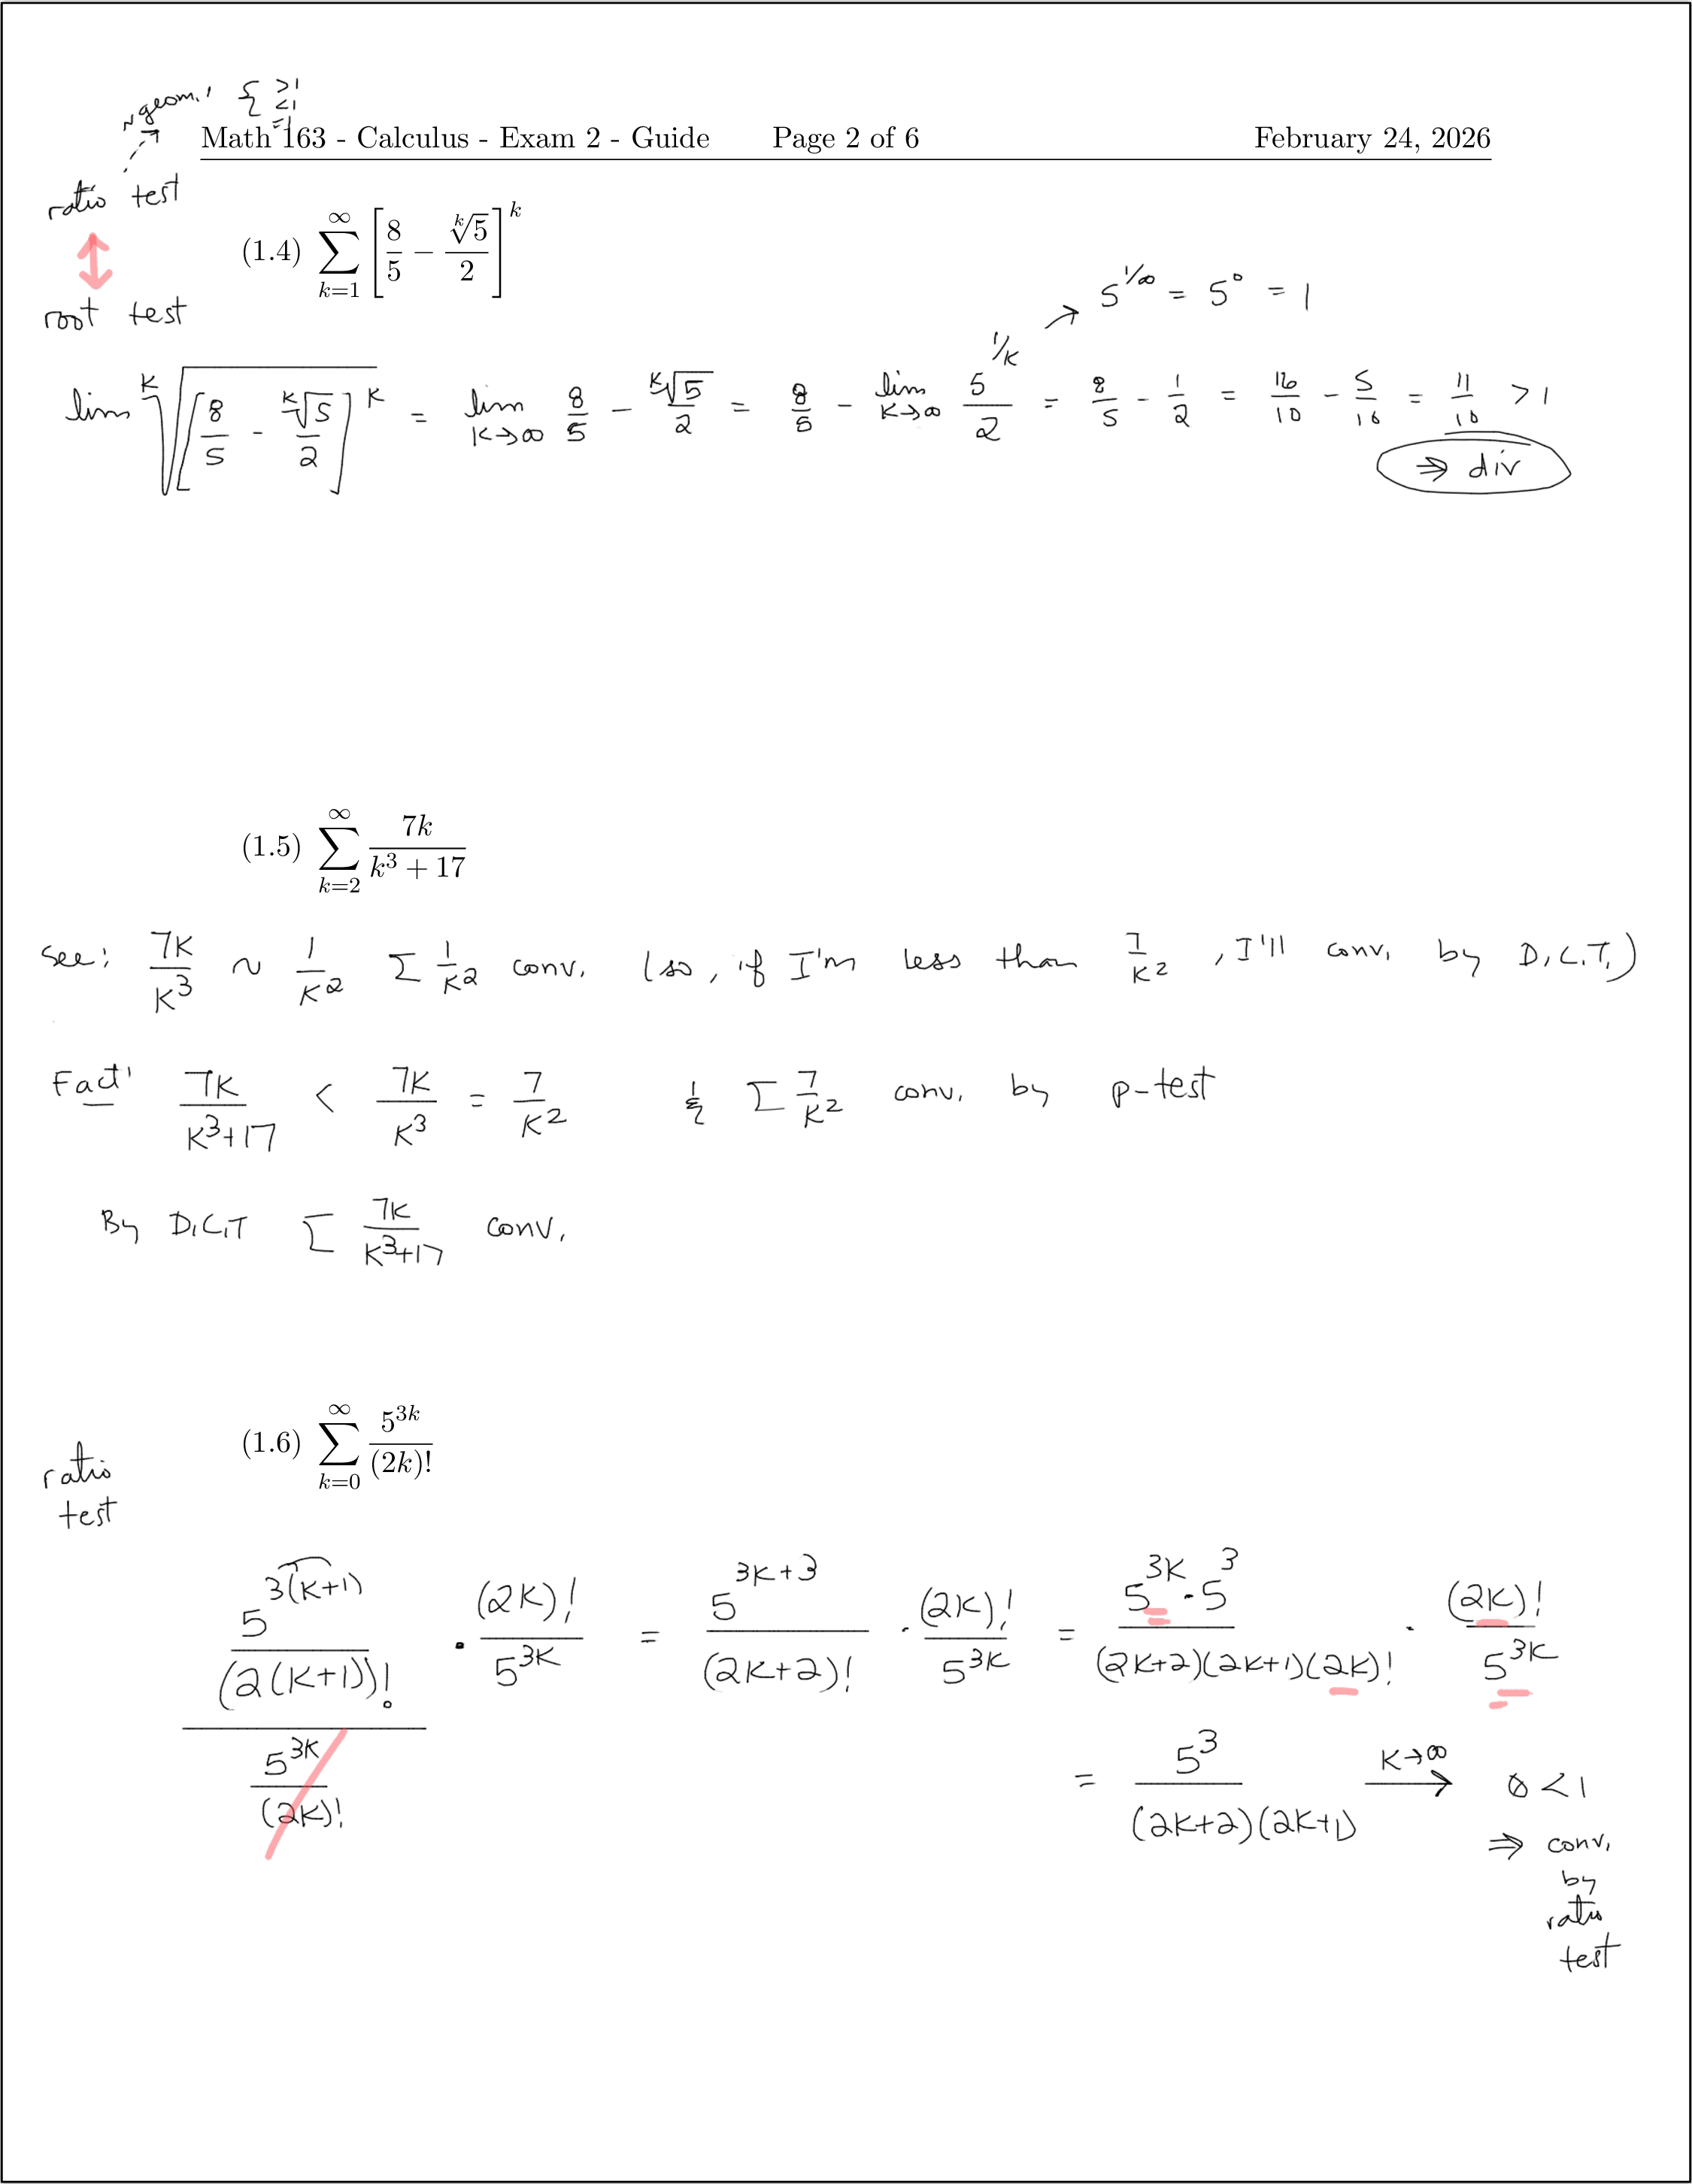 ~geom. { >1
<1
=1
Math 163 - Calculus - Exam 2 - Guide Page 2 of 6 February 24, 2026
ratio test
↕
root test
(1.4) \sum_{k=1}^{∞} [ \frac{8}{5} - \frac{\sqrt[k]{5}}{2} ]^k
5^{1/∞} = 5^0 = 1
lim \sqrt[k]{[ \frac{8}{5} - \frac{\sqrt[k]{5}}{2} ]^k} = lim_{k→∞} \frac{8}{5} - \frac{\sqrt[k]{5}}{2} = \frac{8}{5} - lim_{k→∞} \frac{5^{1/k}}{2} = \frac{8}{5} - \frac{1}{2} = \frac{16}{10} - \frac{5}{10} = \frac{11}{10} > 1
⇒ div
(1.5) \sum_{k=2}^{∞} \frac{7k}{k^3 + 17}
See: \frac{7k}{k^3} ~ \frac{1}{k^2} Σ \frac{1}{k^2} conv. (so, if I'm less than \frac{7}{k^2}, I'll conv. by D.C.T.)
Fact: \frac{7k}{k^3+17} < \frac{7k}{k^3} = \frac{7}{k^2} & Σ \frac{7}{k^2} conv. by p-test
By D.C.T Σ \frac{7k}{k^3+17} conv.
(1.6) \sum_{k=0}^{∞} \frac{5^{3k}}{(2k)!}
ratio
test
\frac{\frac{5^{3(k+1)}}{(2(k+1))!}}{\frac{5^{3k}}{(2k)!}} · \frac{(2k)!}{5^{3k}} = \frac{5^{3k+3}}{(2k+2)!} · \frac{(2k)!}{5^{3k}} = \frac{5^{3k} · 5^3}{(2k+2)(2k+1)(2k)!} · \frac{(2k)!}{5^{3k}}
= \frac{5^3}{(2k+2)(2k+1)} \xrightarrow{k→∞} 0 < 1
⇒ conv.
by
ratio
test